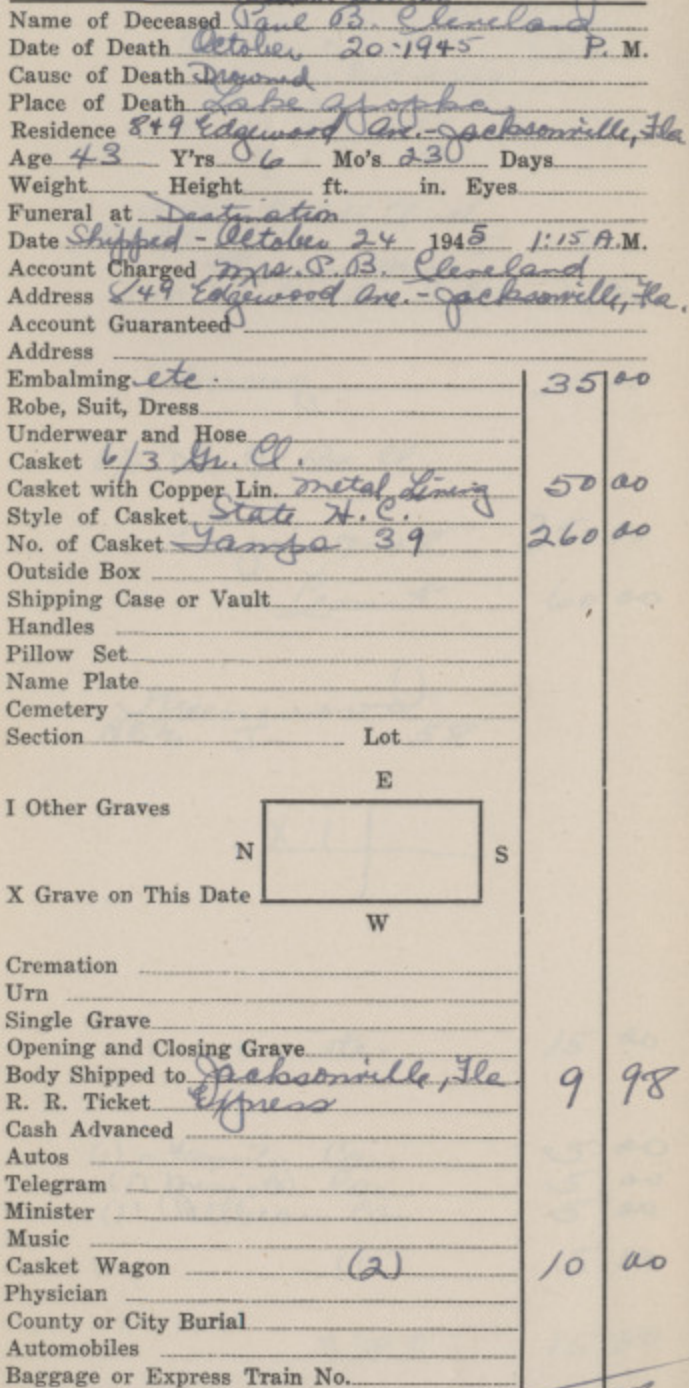 Name of Deceased Paul B. Cleveland
Date of Death October 20-1945 P. M.
Cause of Death Drowned
Place of Death Lake Apopka
Residence 849 Edgewood Ave.-Jacksonville, Fla
Age 43 Y'rs 6 Mo's 23 Days
Weight Height ft. in. Eyes
Funeral at Destination
Date Shipped - October 24 1945 1:15 A.M.
Account Charged Mrs. P. B. Cleveland
Address 849 Edgewood Ave.-Jacksonville, Fla.
Account Guaranteed
Address
Embalming etc. 35 00
Robe, Suit, Dress
Underwear and Hose
Casket 6/3 Gr. Cl.
Casket with Copper Lin. Metal Lining 50 00
Style of Casket State H. C.
No. of Casket Tampa 39 260 00
Outside Box
Shipping Case or Vault
Handles
Pillow Set
Name Plate
Cemetery
Section Lot
E
I Other Graves
N S
X Grave on This Date
W
Cremation
Urn
Single Grave
Opening and Closing Grave
Body Shipped to Jacksonville, Fla 9 98
R. R. Ticket Express
Cash Advanced
Autos
Telegram
Minister
Music
Casket Wagon (2) 10 00
Physician
County or City Burial
Automobiles
Baggage or Express Train No.